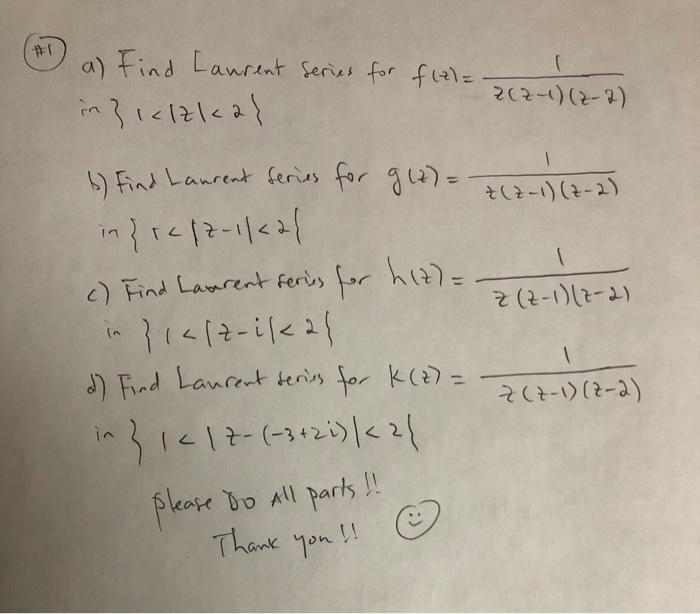 #1
a) Find Laurent Series for f(z) = 1/z(z-1)(z-2)
in } 1<|z|<2 {
b) Find Laurent Series for g(z) = 1/z(z-1)(z-2)
in } 1<|z-1|<2 {
c) Find Laurent Series for h(z) = 1/z(z-1)(z-2)
in } 1<|z-i|<2 {
d) Find Laurent Series for K(z) = 1/z(z-1)(z-2)
in } 1<|z-(-3+2i)|<2 {
Please Do All parts !!
Thank you !!